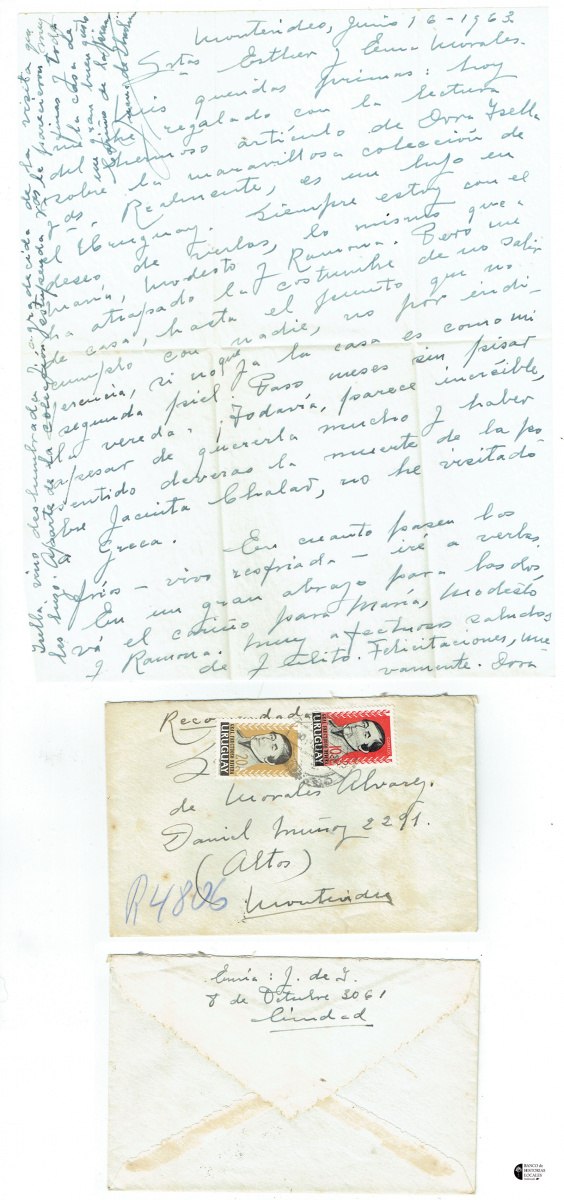 Montevideo, Junio, 6 - 1963.
Sritas Esther y Ema Morales.
Mis queridas primas: hoy
me he regalado con la lectura
del hermoso artículo de Dora Isella
sobre la maravillosa colección de
Uds. Realmente, es un lujo en
el Uruguay. Siempre estoy con el
deseo de verlas, lo mismo que a
María, Modesto y Ramona. Pero me
ha atrapado la costumbre de no salir
de casa, hasta el punto que no
cumplo con nadie, no por indi-
ferencia, si no que ya la casa es como mi
segunda piel. Paso meses sin pisar
la vereda. ¡Todavía, parece increíble,
apesar de quererla mucho y haber
sentido deveras la muerte de la po-
bre Jacinta Chalar, no he visitado
a Greca. En cuanto pasen los
fríos - vivo resfriada - iré a verlas.
En un gran abrazo para las dos,
vá el cariño para María, Modesto
y Ramona. Muy afectuosos saludos
de Julito. Felicitaciones, nue-
vamente. Dora
Isella vino deslumbrada y agradecida de la visita que
les hizo. Aparte de la colección estupenda, Uds le parecieron muy
finas y toda
la casa de
un gran buen gusto.
Cariños de
Juana de Ibarbourou
Recomendada
URUGUAY
URUGUAY
de Morales Alvarez.
Daniel Muñoz 2291.
(Altos)
R4806
Montevideo
Envía: J. de I.
8 de Octubre 3061
Ciudad
BANCO de
HISTORIAS
LOCALES